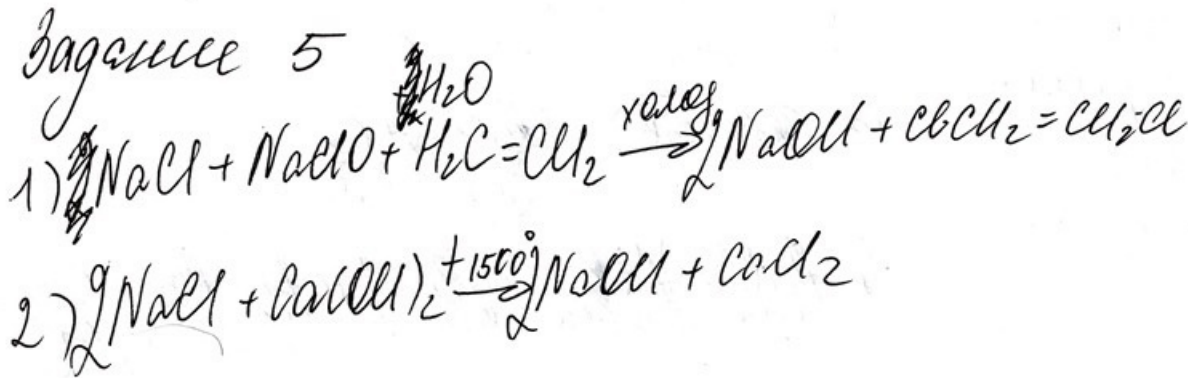 Задание 5
+H₂O
1) NaCl + NaClO + H₂C=CH₂ →холод 2NaOH + ClCH₂=CH₂Cl
2) 2NaCl + Ca(OH)₂ →+1500° 2NaOH + CaCl₂